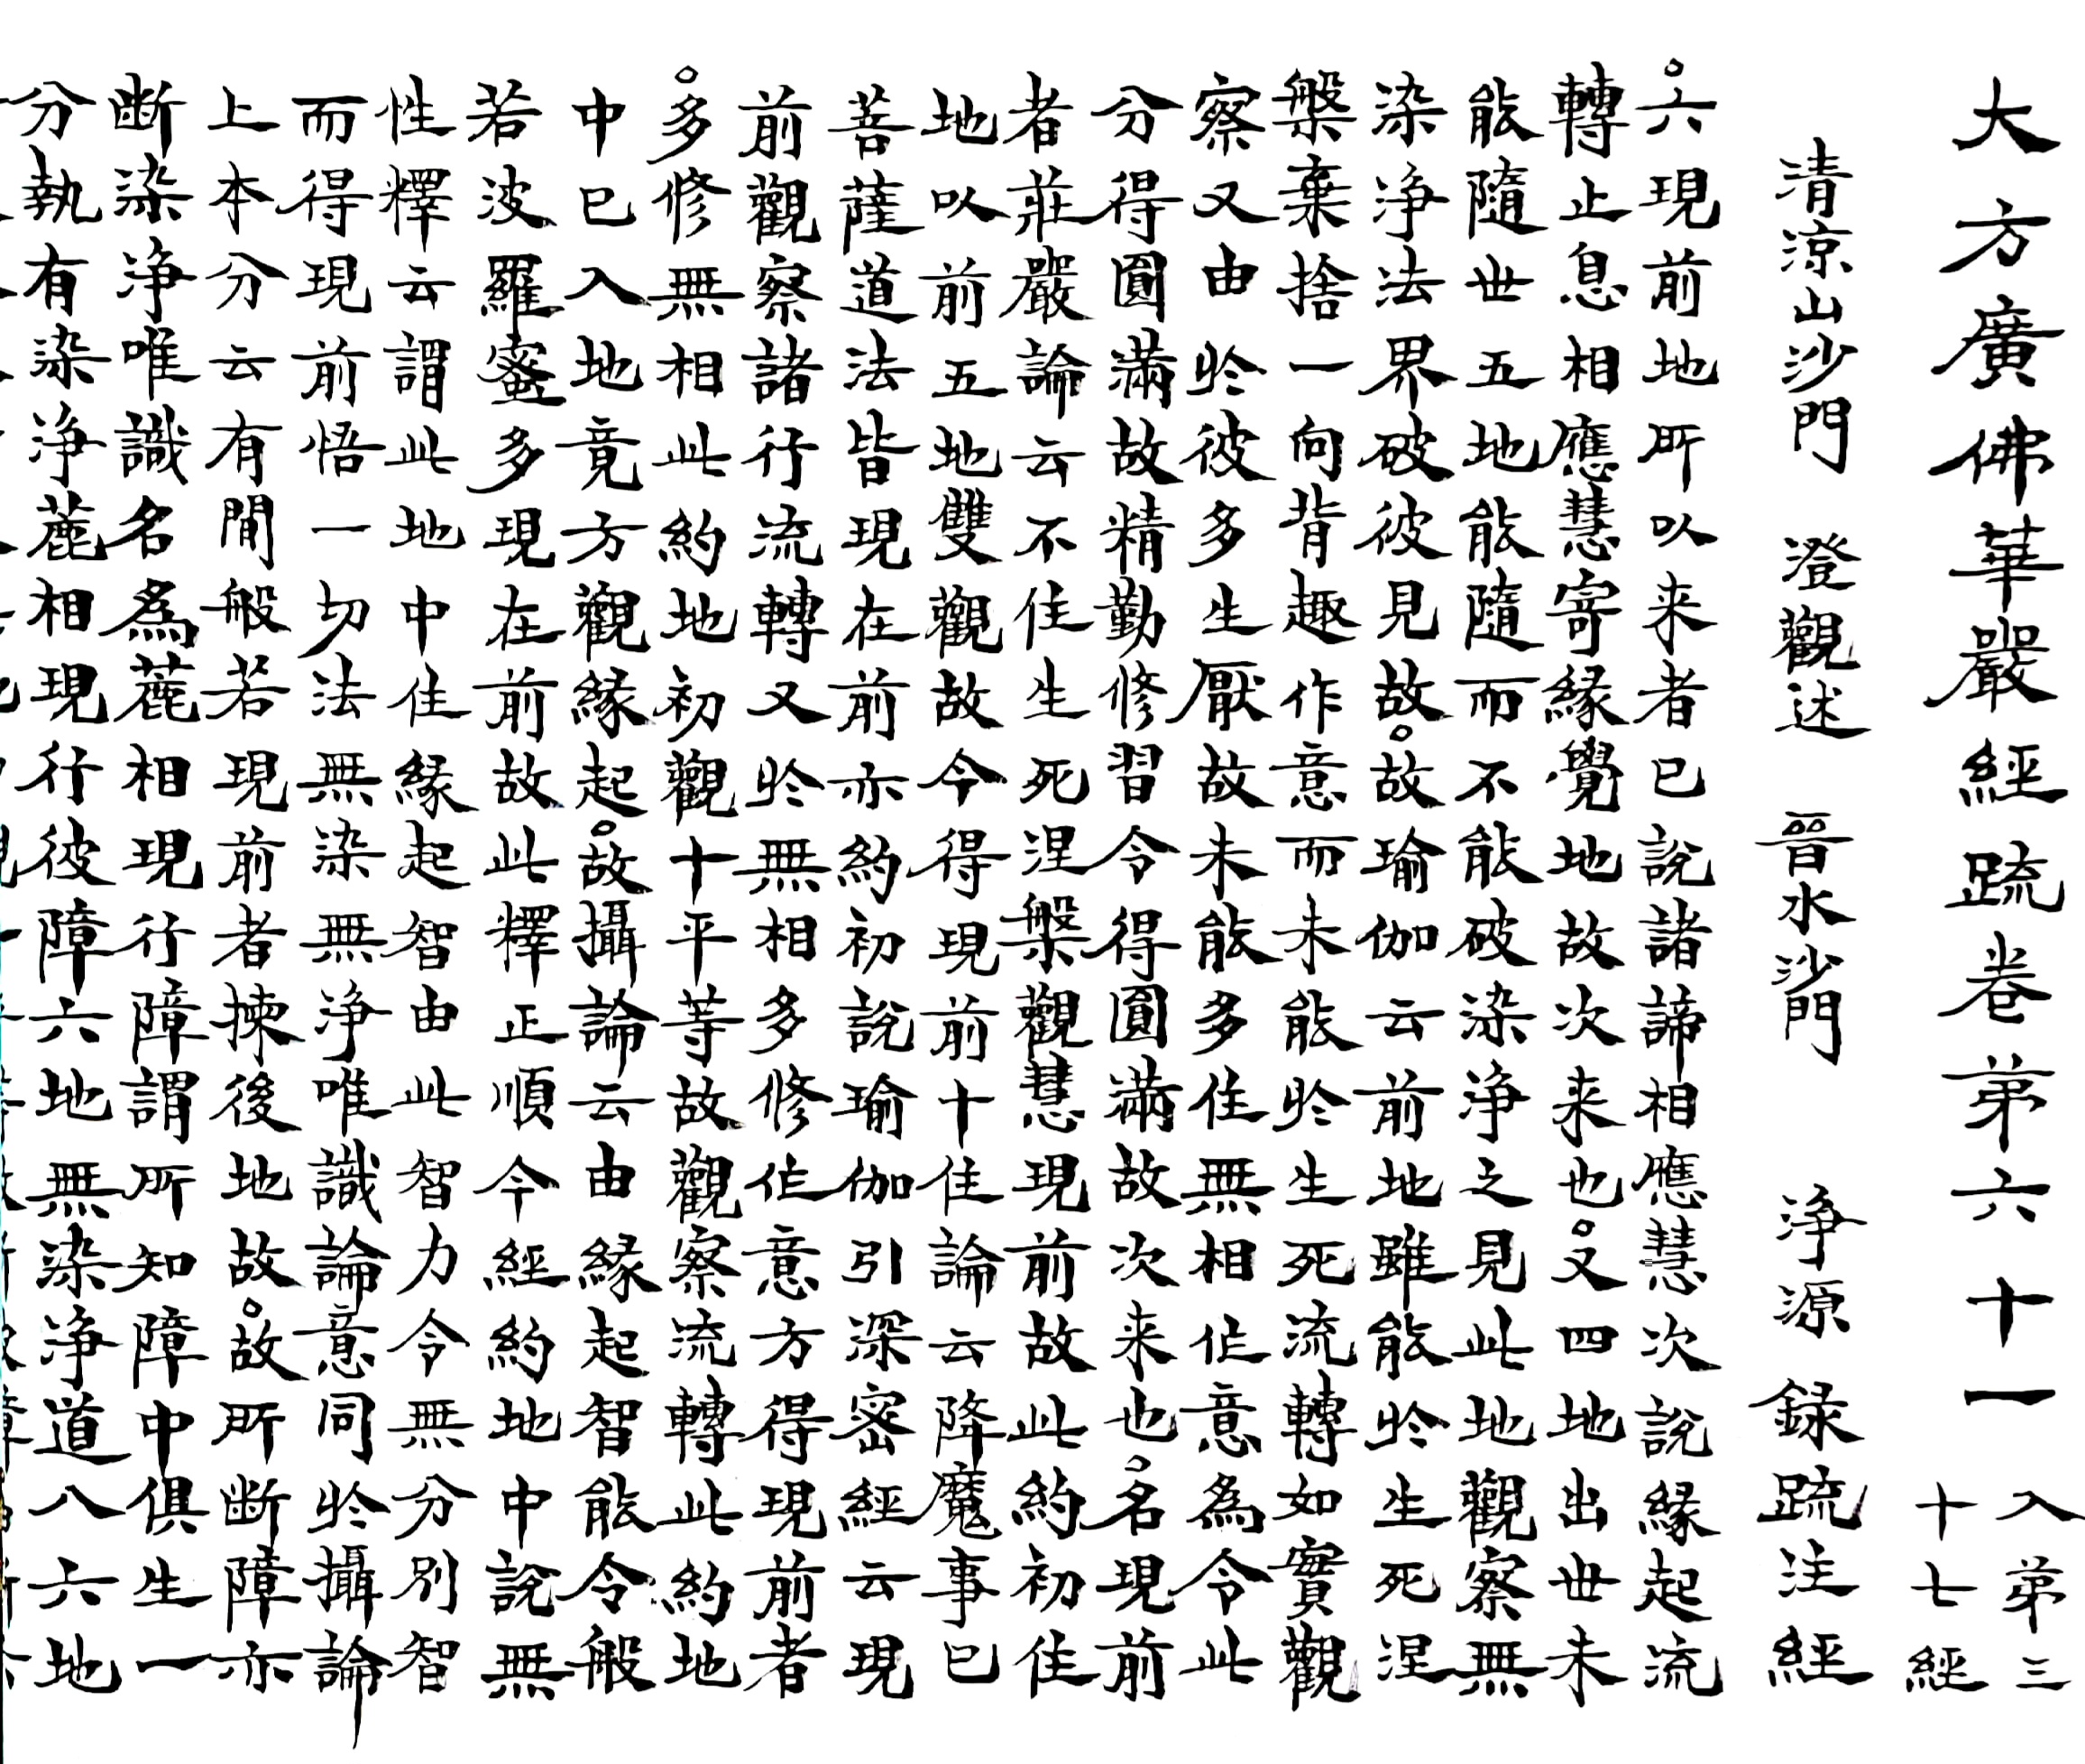 大方廣佛華嚴經疏卷弟六十一
入弟三
十七經
清涼山沙門 澄觀述 晉水沙門 浄源 録疏注經
六現前地所以来者已說諸諦相應慧次說緣起流
轉止息相應慧寄緣覺地故次来也又四地出世未
能隨世五地能隨而不能破染浄之見此地觀察無
染浄法界破彼見故故瑜伽云前地雖能於生死涅
槃棄捨一向背趣作意而未能於生死流轉如實觀
察又由於彼多生厭故未能多住無相作意為令此
分得圓滿故精勤修習令得圓滿故次来也名現前
者莊嚴論云不住生死涅槃觀慧現前故此約初住
地以前五地雙觀故今得現前十住論云降魔事已
菩薩道法皆現在前亦約初說瑜伽引深密經云現
前觀察諸行流轉又於無相多修作意方得現前者
多修無相此約地初觀十平等故觀察流轉此約地
中已入地竟方觀緣起故攝論云由緣起智能令般
若波羅蜜多現在前故此釋正順今經約地中說無
性釋云謂此地中住緣起智由此智力令無分別智
而得現前悟一切法無染無浄唯識論意同於攝論
上本分云有閒般若現前者揀後地故故所断障亦
断染浄唯識名為麁相現行障謂所知障中俱生一
分執有染浄麁相現行彼障六地無染浄道八六地